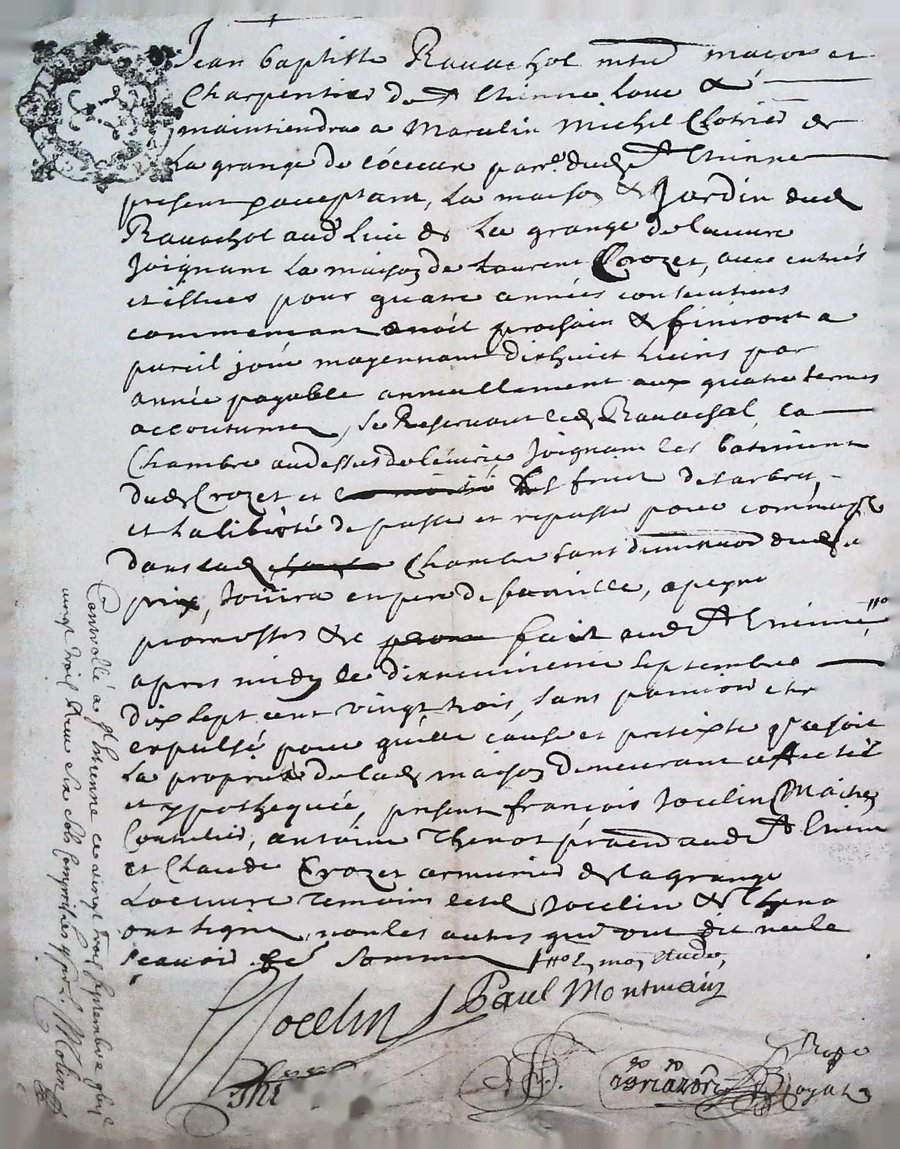 Jean baptiste Ravachol mtre maçon et
Charpentier de St Etienne loue &
maintiendra a Marcelin Michel Clotrier de
La grange de l'oeuvre parr. dud St Etienne
present & acceptant, La maison & Jardin dud
Ravachol aud Lieu de La grange de l'oeuvre
Joignant La maison de Laurent Crozet, avec entrés
et issues pour quatre années consecutives
commencant a noël prochain & finiront a
pareil jour moyennant dixhuict Livres par
année payable annuellement aux quatre termes
accoutumes, se Reservant led Ravachol, la
Chambre audessus de l'écurie Joignant les batiment
dud Crozet et les fruit des arbres
et la liberté de passer et repasser pour
dans lad Chambre sans diminution dud
prix, Joüira en pere de famille, a peyne
promesses &c fait aud St Etienne
apres midy le dixneuvieme septembre
dix sept cent vingt trois, sans pouvoir etre
expulsé pour quelle cause et pretexte que soit
La proprieté de lad maison demeurant affectée
et ypothequée, present françois Jocelin Maitre
Coutelier, antoine Thenot praen aud St Etienne
et Claude Crozet armurier de la grange
Loeuvre Temoins lesd Jocelin & Theno
ont signé, non les autres qui ont dit ne le
scavoir de ce Sommes
Jocelin Paul Montmain
Controllé a St Etienne ce vingt trois septembre
vingt trois Receu six sols Molin